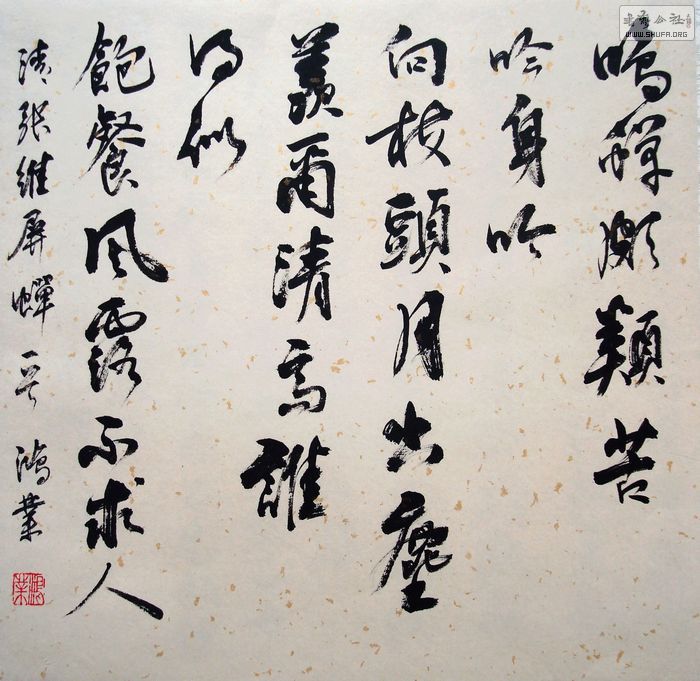 鳴蟬頗類苦
吟身吟
向枝頭月出塵
羨爾清高誰
得似
飽餐風露不求人
清張維屏蟬 鴻業
鴻業
公社
WWW.SHUFA.ORG